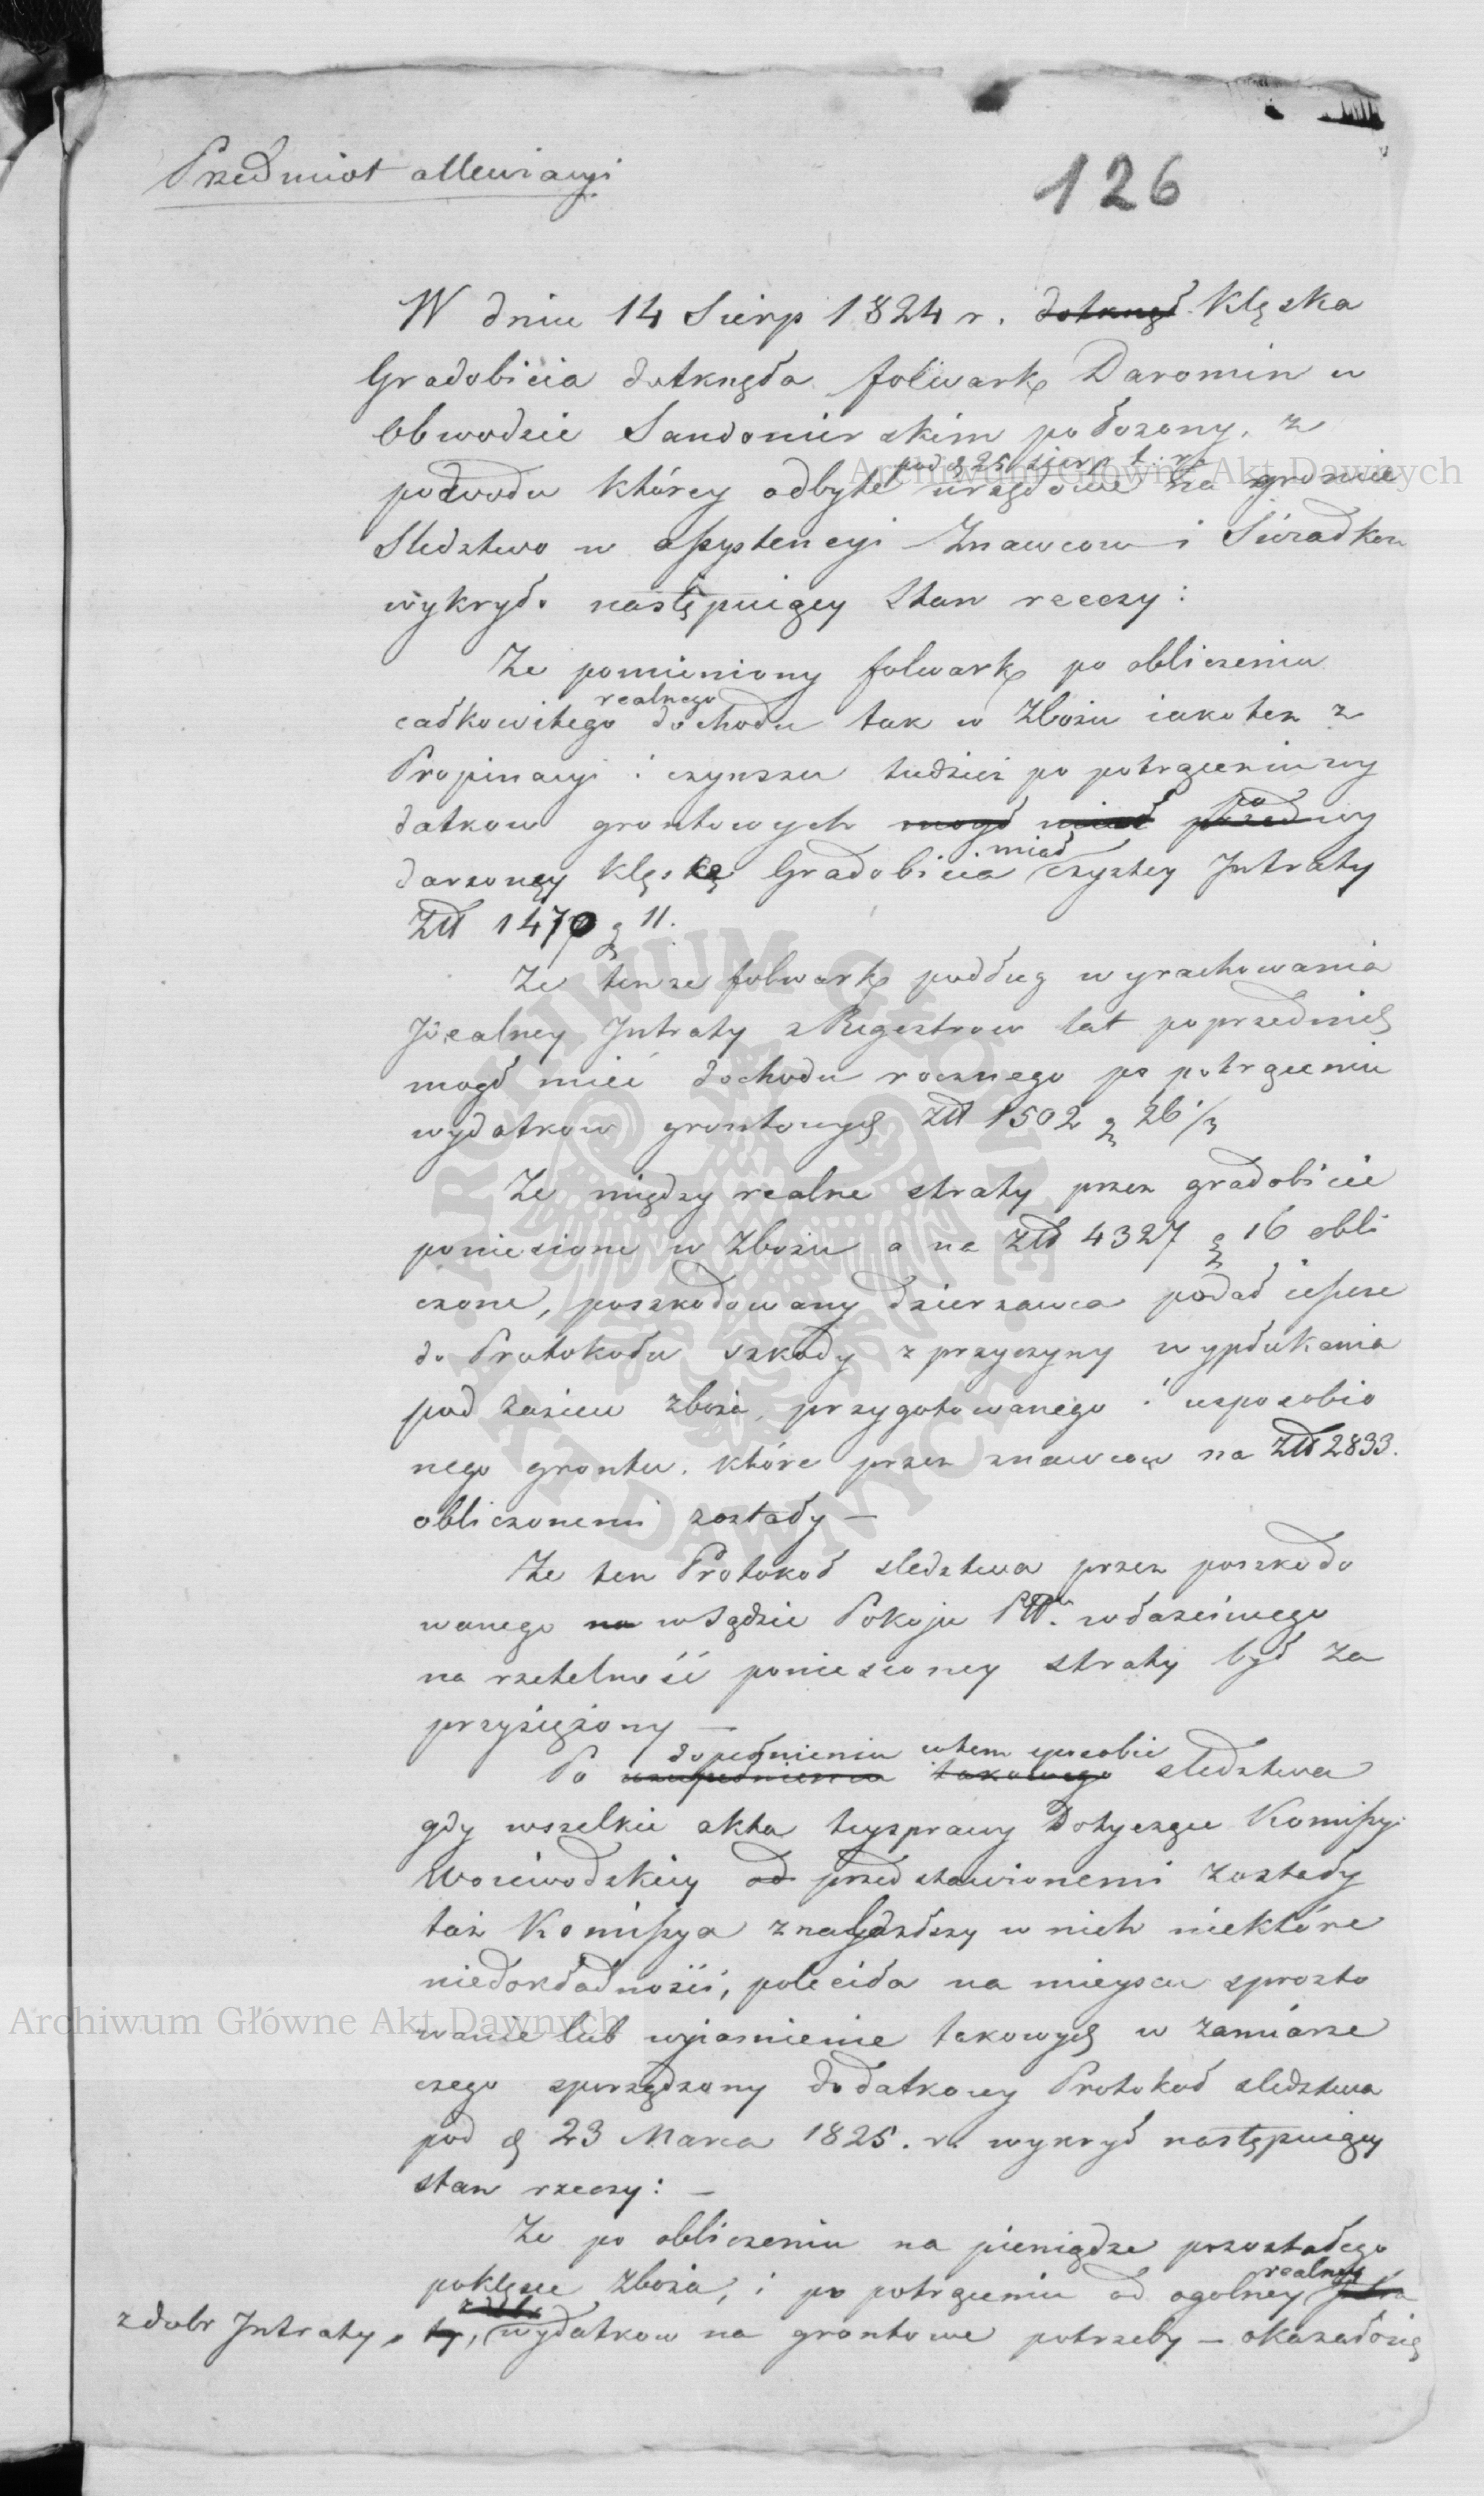 Przedmiot allewiacyi
126
W dniu 14 Sierp 1824 r. dotknęł Klęska
Gradobicia dotknęła folwark Daromin w
Obwodzie Sandomirskim położony, z
pod d 25 sierp t. r.
powodu którey odbyte urzędowe na groncie
Sledztwo w assystencyi Znawcow i Swiadkow
wykryło następuiący Stan rzeczy:
Ze pomieniony folwark po obliczeniu
realnego
całkowitego dochodu tak w Zbożu iakotez z
Propinacyi i czynszu tudzież po potrąceniu wy
datkow grontowych mogł miał przed wy
po
miał
darzoney Klęskę Gradobicia czystey Intraty
Złł 1470 g 11.
Ze tenze folwark podług wyrachowania
Idealney Intraty z Regestrow lat poprzednich
mogł mieć dochodu rocznego po potrąceniu
wydatkow grontowych Złł 1502 g 26 1/3
Ze między realne straty przez gradobicie
poniesione w Zbożu a na Złł 4327 g 16 obli
czone, poszkodowany dzierzawca podał ieszcze
do Protokołu szkody z przyczyny wypłukania
pod zasiew zboża, przygotowanego i usposobio
nego grontu, które przez znawcow na Złł 2833.
obliczonemi zostały —
Ze ten Protokoł sledztwa przez poszkodo
wanego na w Sądzie Pokoju właściwego
na rzetelność poniesioney straty był za
przysiężony —
dopełnieniu w tem sposobie
Po uzupełnieniu takowego sledztwa
gdy wszelkie akta tey sprawy dotyczące Komissyi
Woiewodzkiey od przedstawionemi zostały
taż Komissya znalazłszy w nich niektóre
niedokładności, poleciła na mieyscu sprosto
wanie lub wyiasnienie takowych w zamiarze
czego sporządzony dodatkowy Protokoł sledztwa
pod d 23 Marca 1825. r. wykrył następuiący
stan rzeczy: —
Ze po obliczeniu na pieniądze pozostałego
po klęsce Zboża, i po potrąceniu od ogolney Intra
realney
z dobr Intraty, ty, wydatkow na grontowe potrzeby — okazało się
Archiwum Główne Akt Dawnych
Archiwum Główne Akt Dawnych
ARCHIWUM GŁÓWNE · AKT DAWNYCH ·